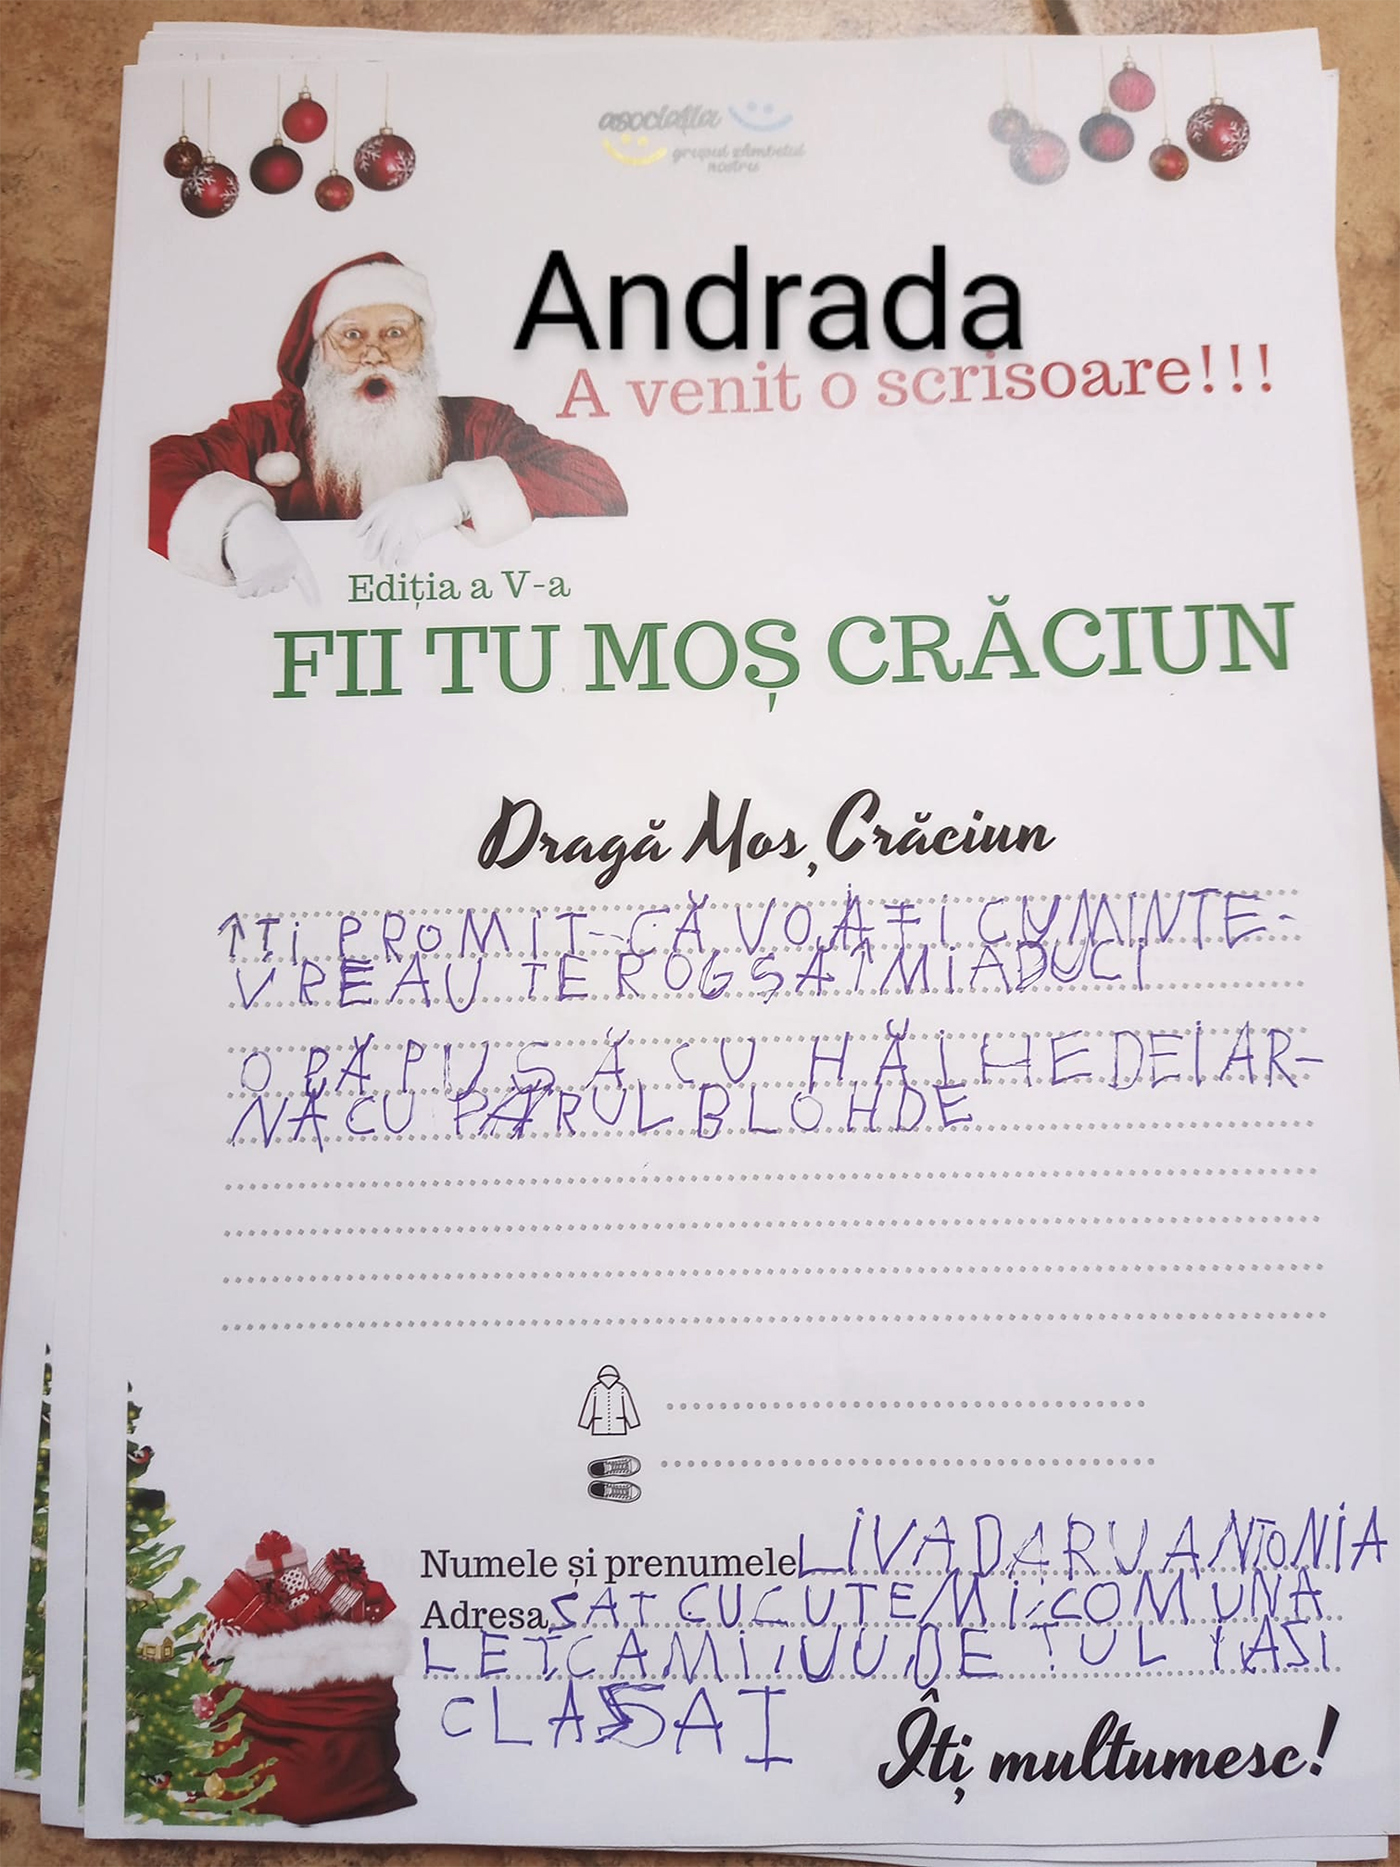 asociația
grupul zâmbetul
nostru
Andrada
A venit o scrisoare!!!
Ediția a V-a
FII TU MOȘ CRĂCIUN
Dragă Moș Crăciun
ÎTI PROMIT-CĂ VOĂ FI CUMINTE-
VREAU TE ROG SĂ ÎMI ADUCI
O PĂPUȘĂ CU HĂIHE DE IAR-
NĂ CU PĂRUL BLOHDE
Numele și prenumele LIVADARU ANTONIA
Adresa SAT CUCUTENI, COMUNA
LEȚCAMI, JUDEȚUL IASI
CLASA I
Îți multumesc!